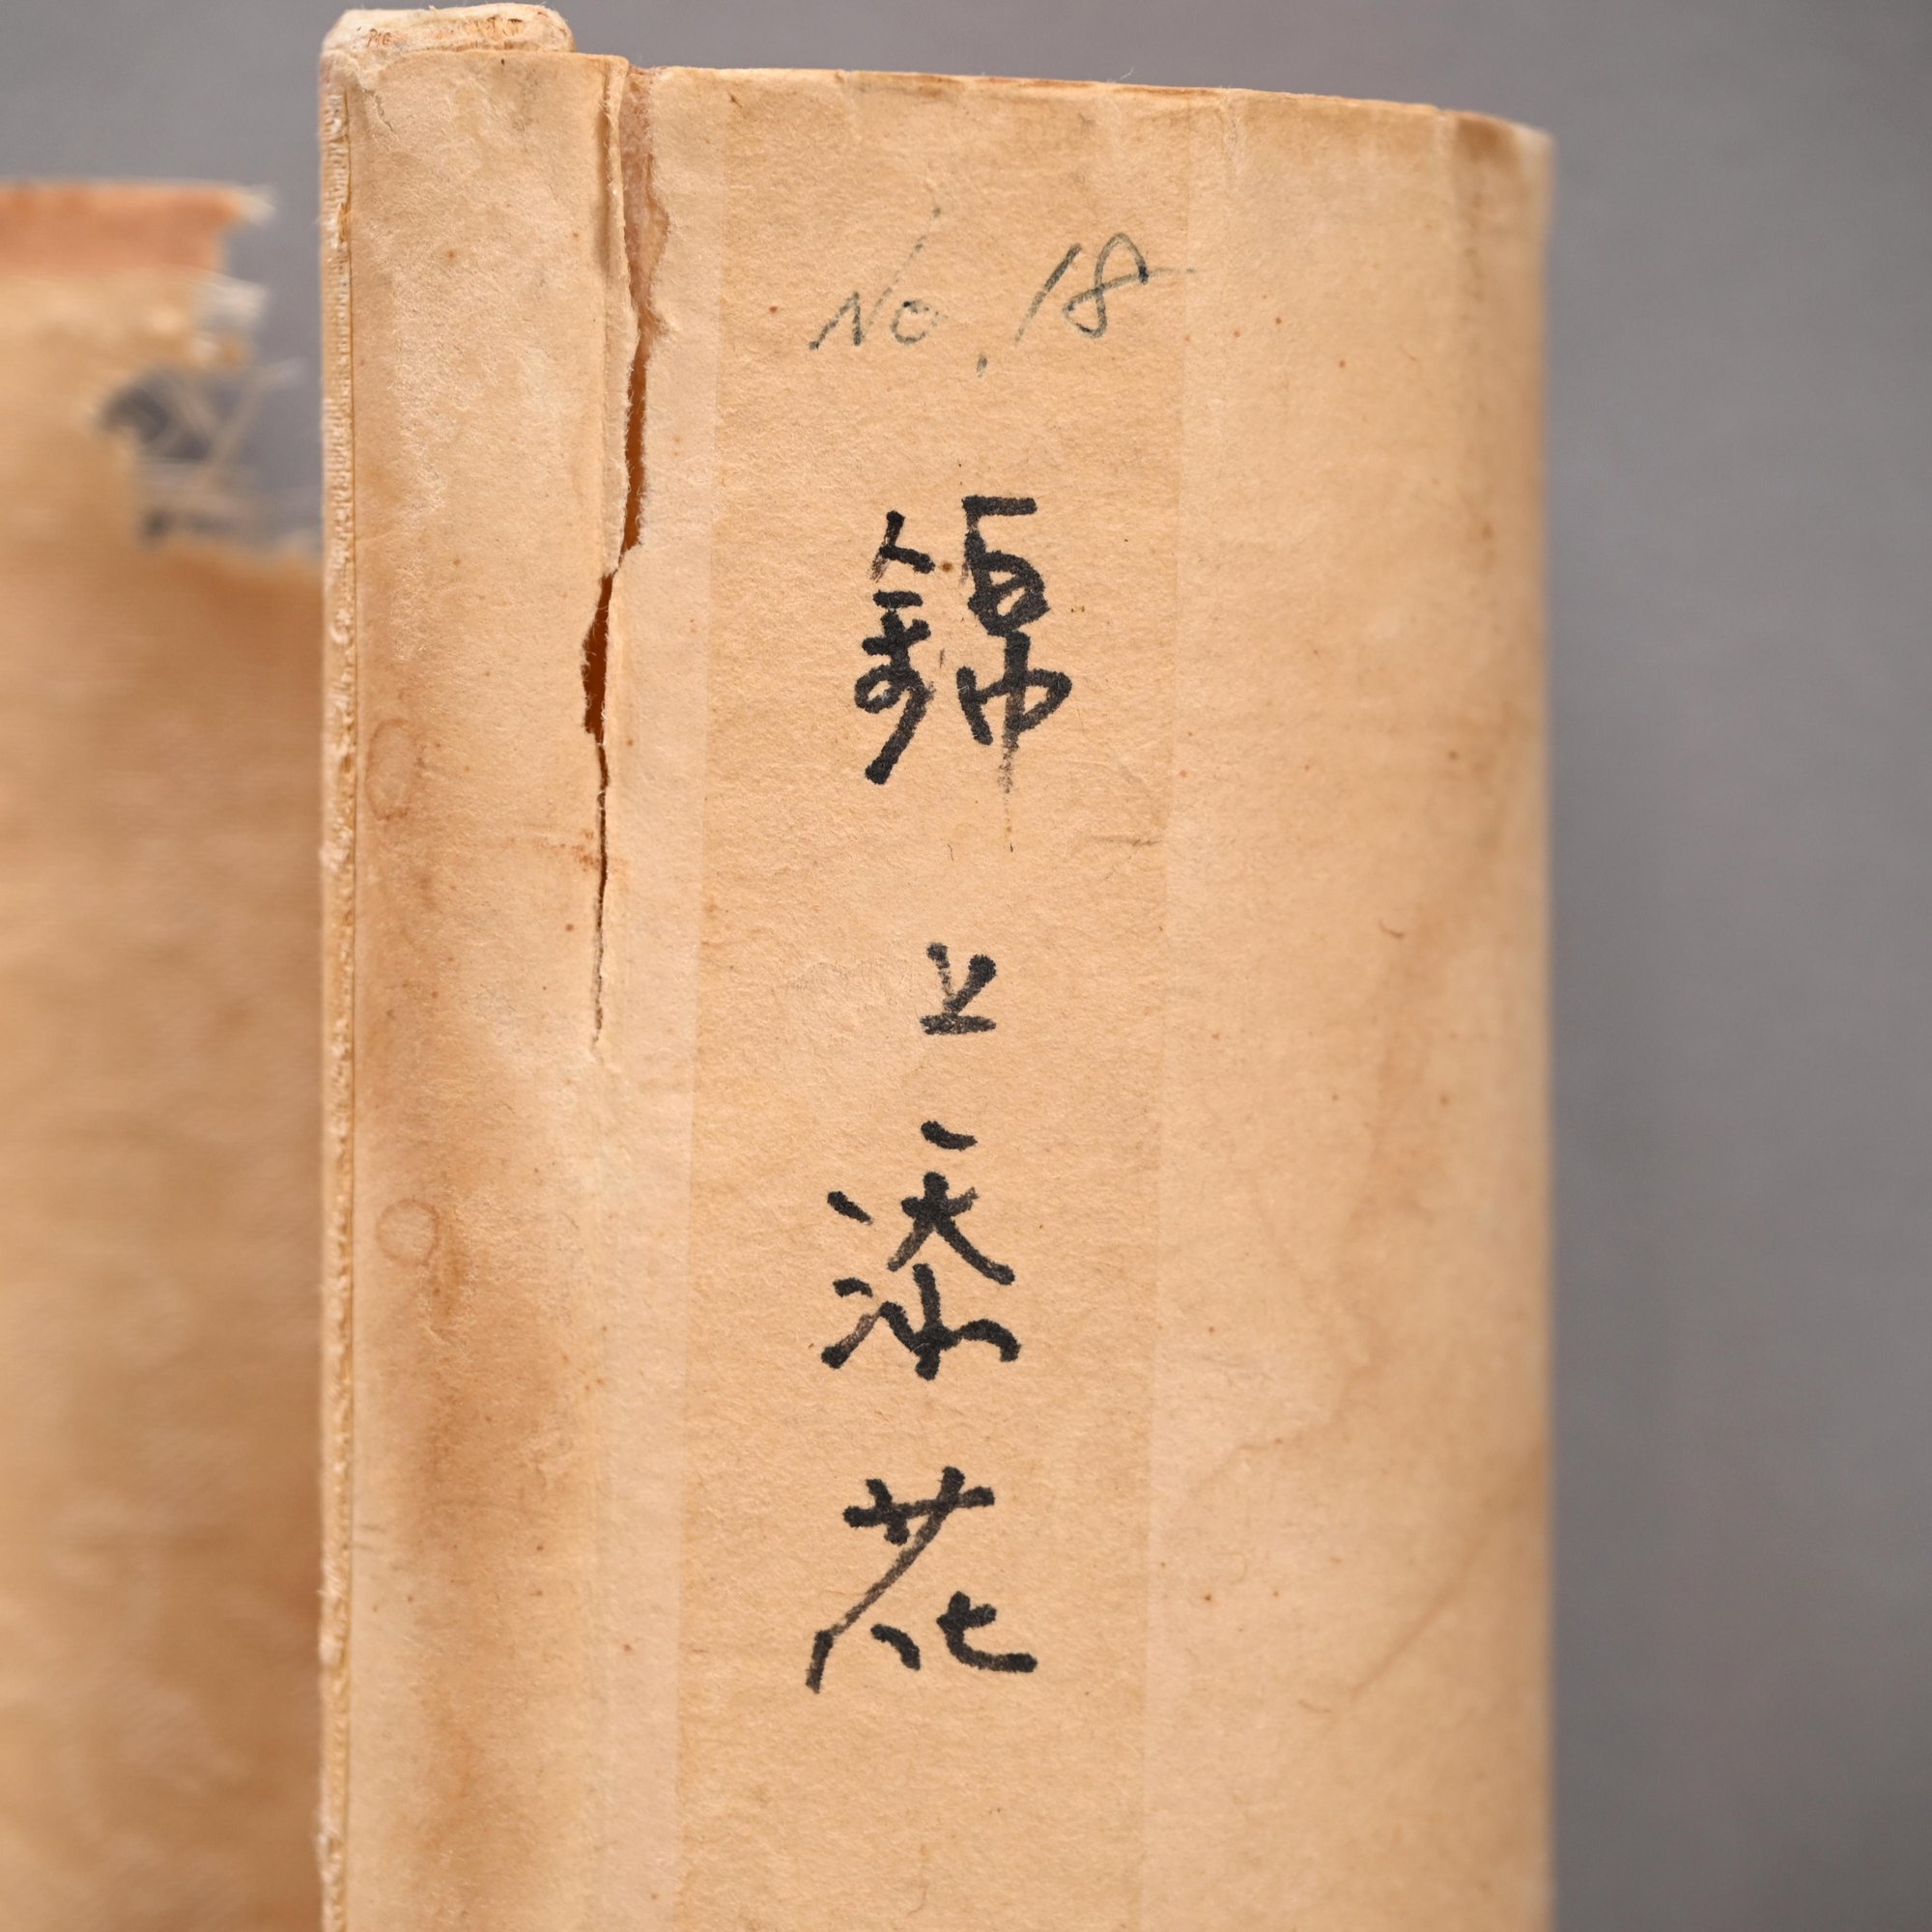 No. 18
錦上添花